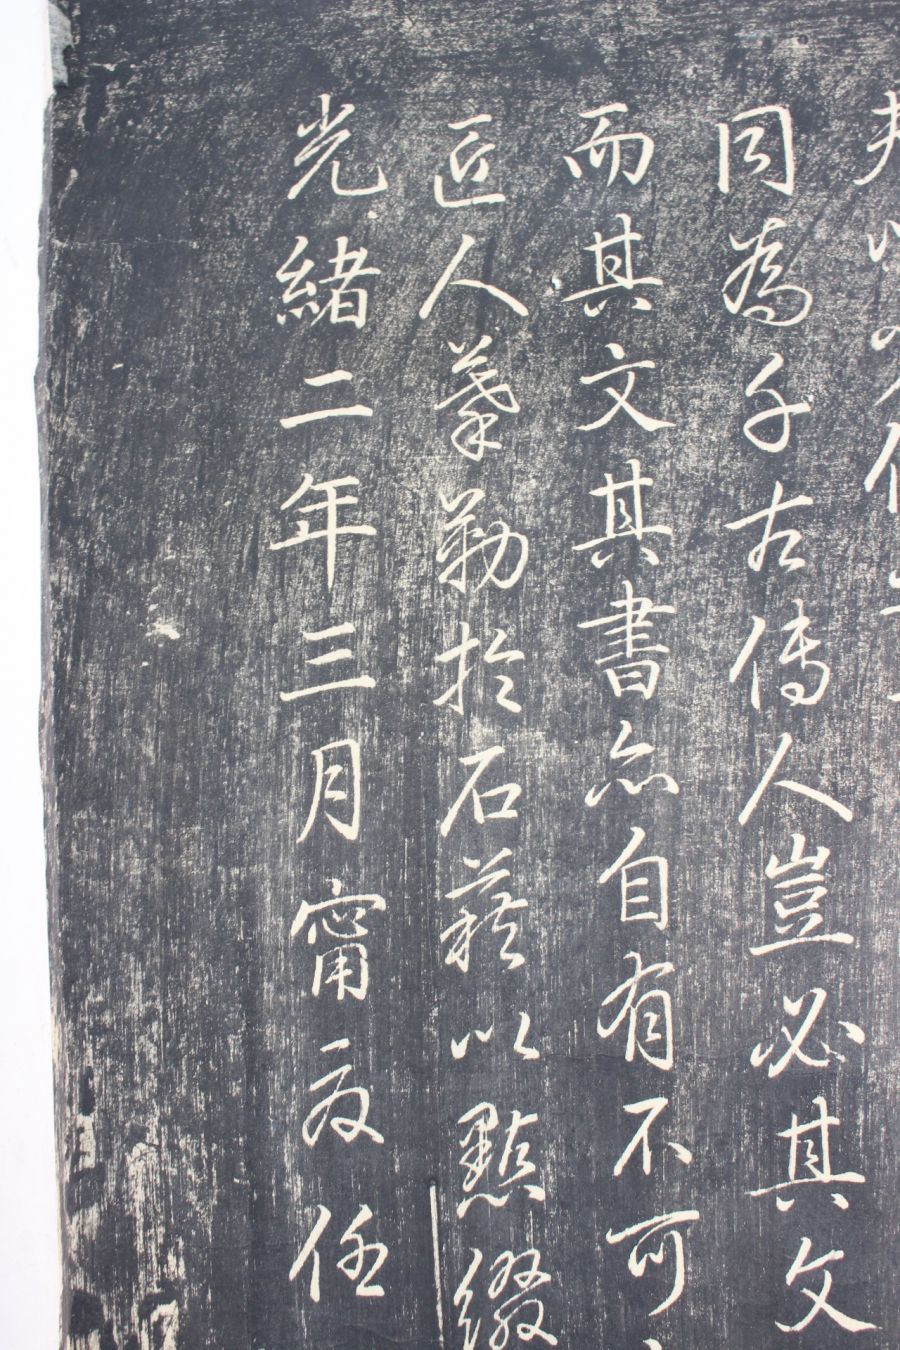 同為千古傳人豈必其文
而其文其書亦自有不可
匠人摹勒於石藉以點綴
光緒二年三月甯夏任